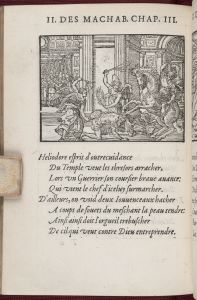 II. DES MACHAB. CHAP. III.
Heliodore espris d'outrecuidance
Du Temple veut les thresors arracher,
Lors un Guerrier son coursier brave avance,
Qui vient le chef d'iceluy surmarcher.
D'ailleurs, on void deux Iouuenceaux hacher
A coups de fouets du meschant la peau tendre:
Ainsi ainsi doit l'orgueil trebuscher
De cil qui veut contre Dieu entreprendre.